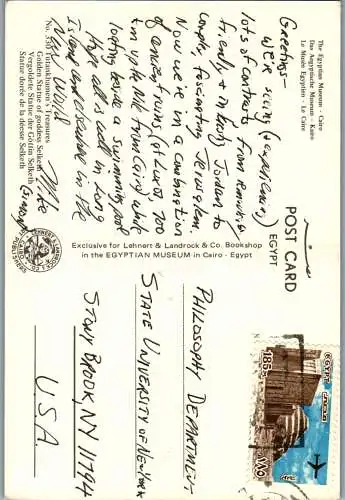 The Egyptian Museum - Cairo
Das Aegyptische Museum - Kairo
Le Musée Egyptien - Le Caire
Greetings -
We're seeing (& experiencing)
lots of contrasts from
friendly and Jordan to
complex, fascinating Jerusalem.
Now we're in a combination
of ancient ruins (at Luxor, 700
km up the Nile from Cairo) while
loafing beside a swimming pool
Hope all's well in Long
Island and elsewhere in the
New World
Mike
No. 350 Tutankhamun's Treasures
Golden Statue of goddess Selketh
Vergoldete Statue der Göttin Selketh
Statue dorée de la déesse Selketh
POST CARD
EGYPT
Exclusive for Lehnert & Landrock & Co. Bookshop
in the EGYPTIAN MUSEUM in Cairo - Egypt
LEHNERT & LANDROCK
CAIRO
EGYPT
PHILOSOPHY DEPARTMENT
STATE UNIVERSITY OF NEW YORK
STONY BROOK, NY 11794
U.S.A.